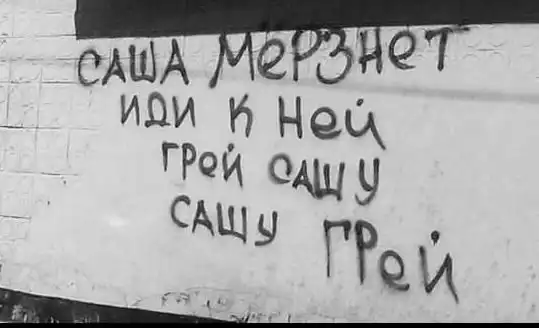 САША МЕРЗНЕТ
ИДИ К НЕЙ
ГРЕЙ САШУ
САШУ ГРЕЙ